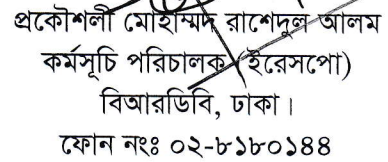 প্রকৌশলী মোহাম্মদ রাশেদুল আলম
কর্মসূচি পরিচালক (ইরেসপো)
বিআরডিবি, ঢাকা।
ফোন নংঃ ০২-৮১৮০১৪৪